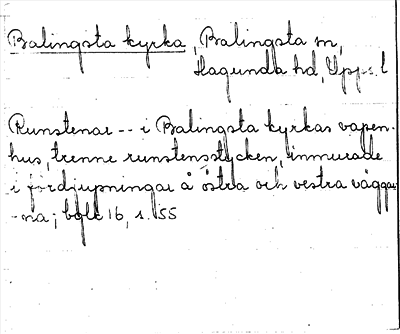 Balingsta kyrka, Balingsta sn,
Hagunda hd, Upps. l
Runstenar -- i Balingsta kyrkas vapen-
hus, trenne runstensstycken, inmurade
i fördjupningar å östra och vestra väggar
-na; bglc 16, s. 55